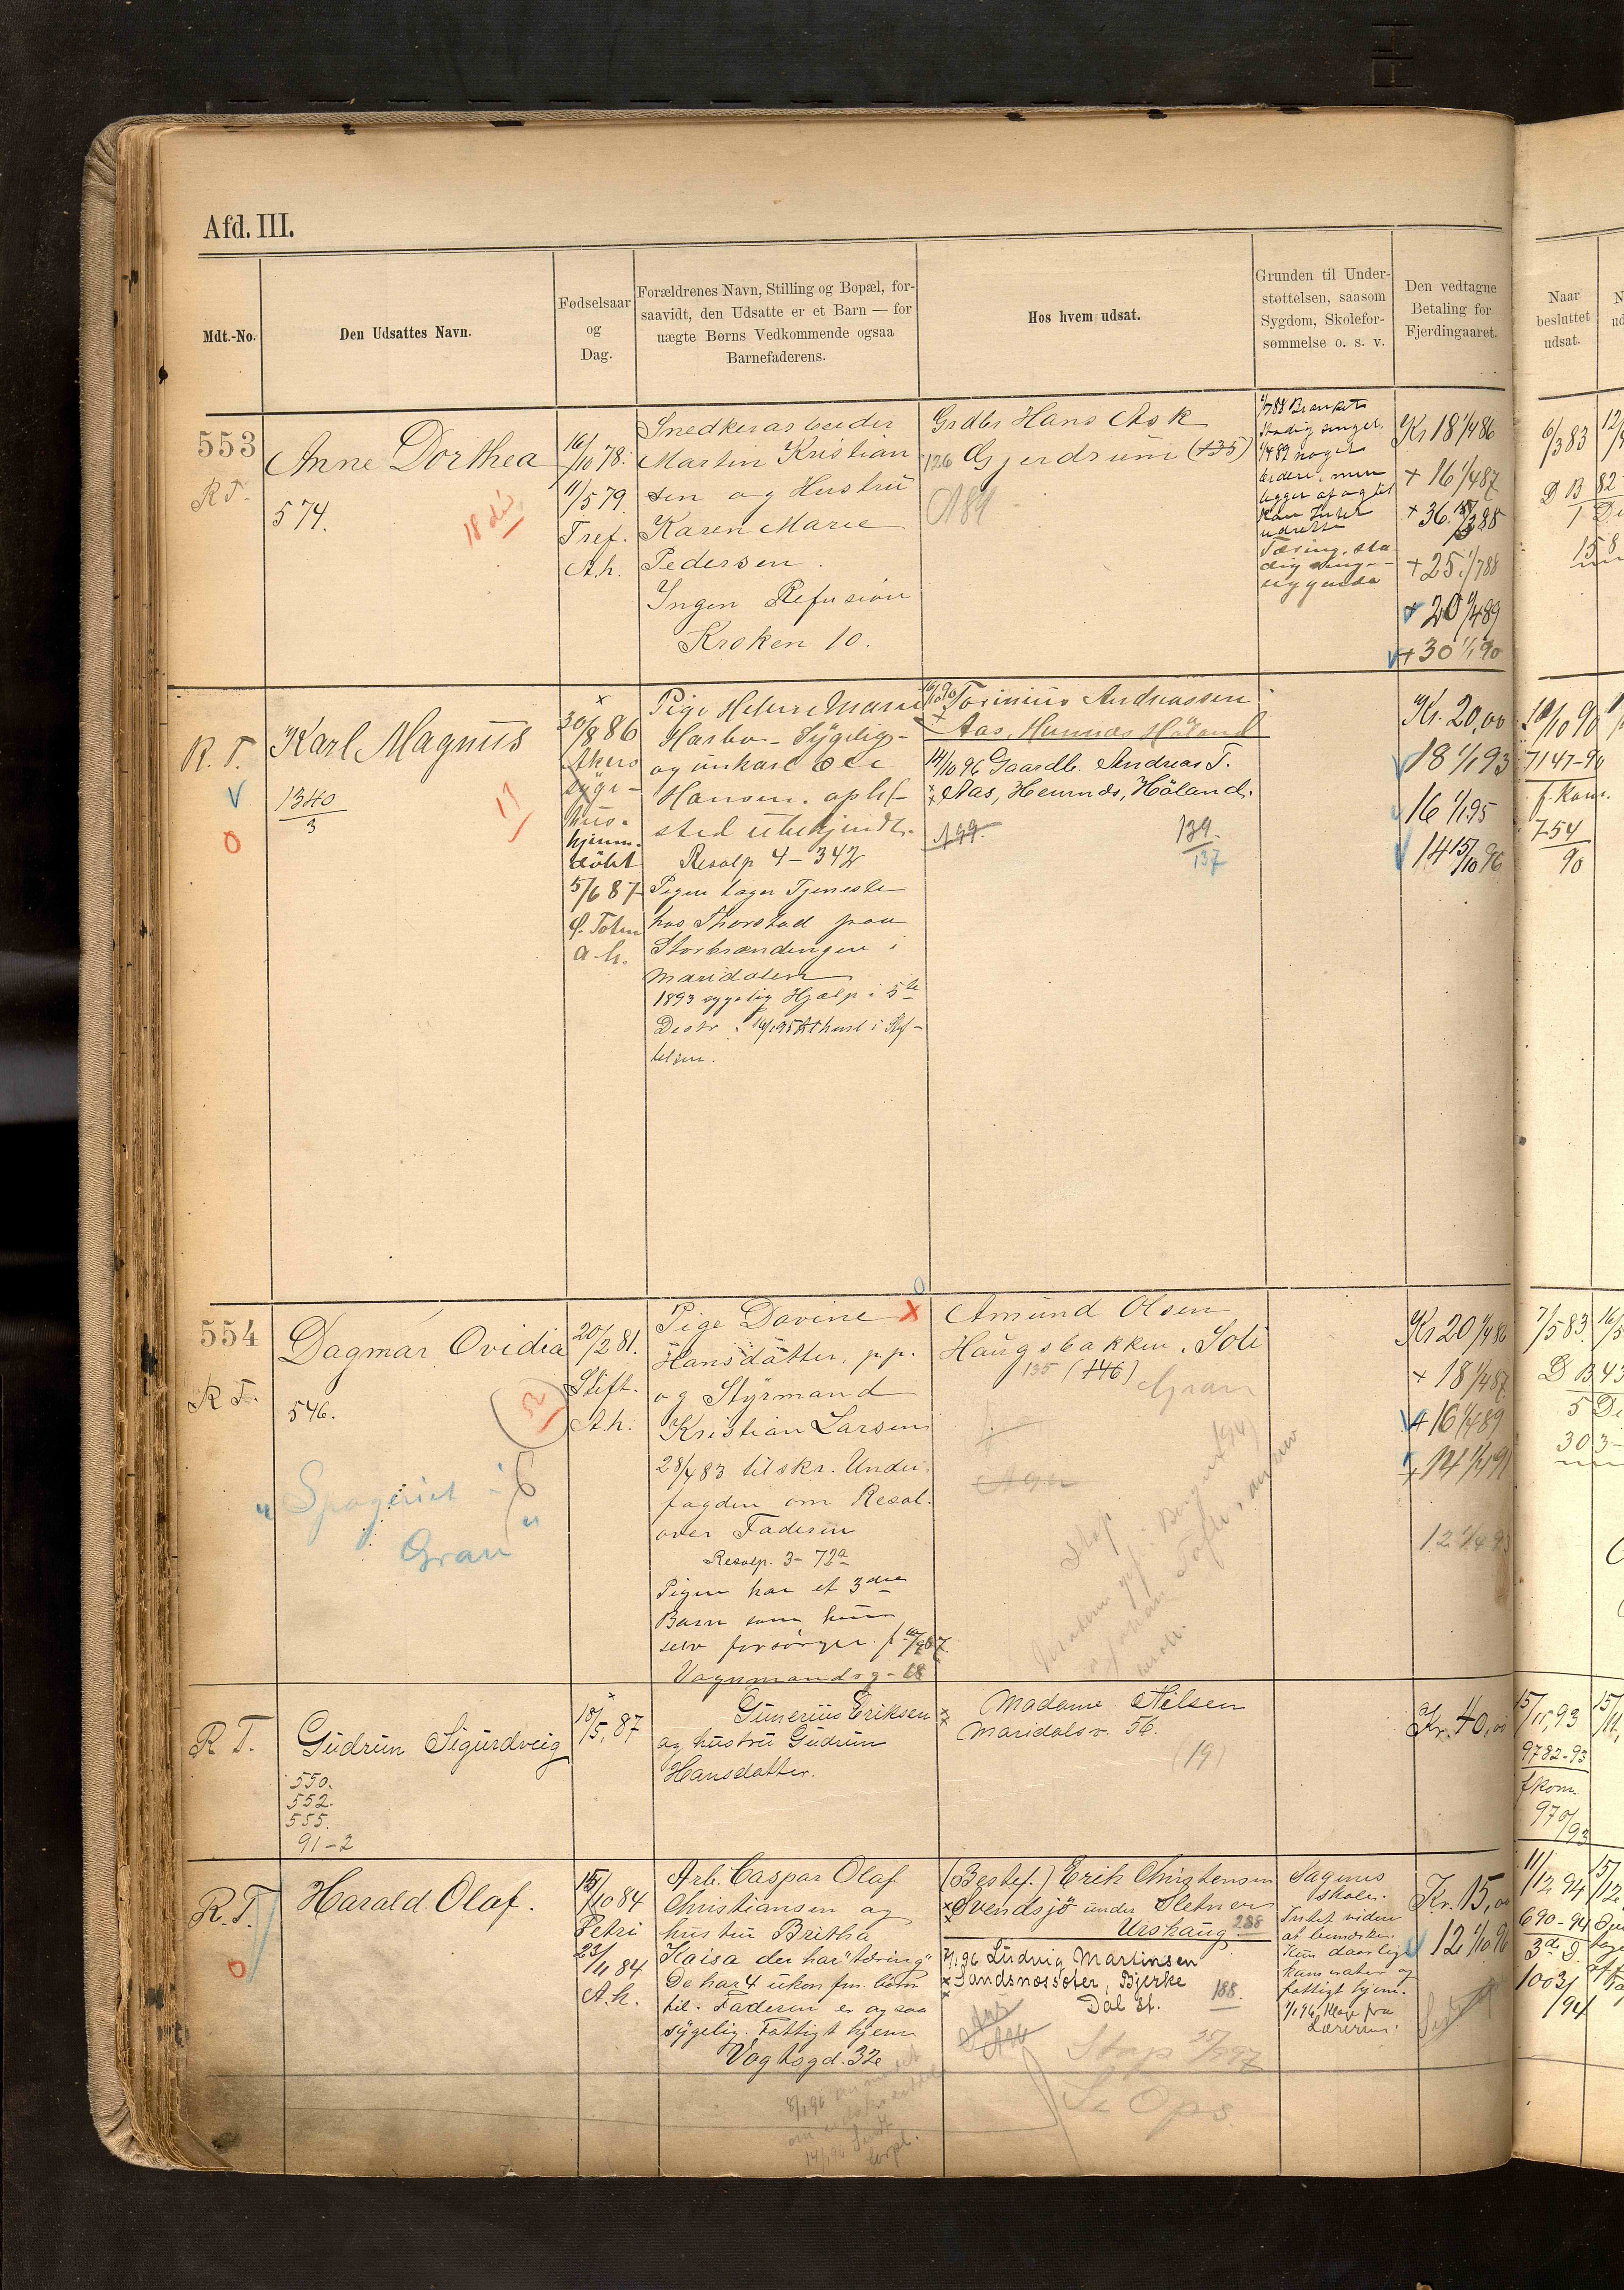 Afd. III.
Mdt.-No.
Den Udsattes Navn.
Fødselsaar
og
Dag.
Forældrenes Navn, Stilling og Bopæl, for-
saavidt, den Udsatte er et Barn — for
uægte Børns Vedkommende ogsaa
Barnefaderens.
Hos hvem udsat.
Grunden til Under-
støttelsen, saasom
Sygdom, Skolefor-
sømmelse o. s. v.
Den vedtagne
Betaling for
Fjerdingaaret.
Naar
besluttet
udsat.
553
R T.
Anne Dorthea
574.
16/10 78.
11/5 79.
Tref.
A.h.
Snedkerarbeider
Martin Kristian
sen og Hustru
Karen Marie
Pedersen.
Ingen Refusion
Kroken 10.
Grdbr Hans Ask
126 Gjerdrum (135)
A 89
stadig senget.
noget
bedre, men
ligger af og til
kan Intet
udrette
Tæring, sta-
dig senge-
liggende
Kr 18 1/4 86
+ 16 1/4 87
+ 25 1/7 88
+ 20 1/4 89
+ 30 1/1 90
6/3 83
D B 82
158
R. T.
V
O
Karl Magnus
1340
3
17
30/8 86
Akers
syge-
hus.
hjemm.
døbt
5/6 87
Ø. Toten
a. h.
Pige Helene Marie
Harbo - Sygelig -
og unkarl Ole
Hansen. opholds-
sted ubekjendt.
Resolp 4 - 342
Pigen tager Tjeneste
hos Thorstad paa
Storbrændingen i
Maridalen
1893 sygelig Hjælp i 5te
Distr.
Torinius Andreassen
Aas, Hemnæs Høland
14/10 96 Gaardb. Andreas T.
Aas, Hemnæs, Høland.
A 99.
139.
137
Kr. 20,00
18 1/1 93
16 1/1 95
14 15/10 96
10/10 90
7147-90
f. kom.
754
90
554
R T.
Dagmar Ovidia
546.
52
"Spageriet i
Gran"
20/2 81.
Stift.
A. h.
Pige Davine
Hansdatter, p.p.
og Styrmand
Kristian Larsen
28/4 83 tilskr. Under
fogden om Resol.
over Faderen
Resolp. 3 - 72a
Pigen har et 3die
Barn som hun
selv forsørger.
Vognmandsg - 28
Amund Olsen
Haugsbakken. Soli
135 (146)
Gran
Stop
Kr 20 1/4 86
+ 18 1/4 87
+ 16 1/4 89
+ 14 1/4 91
12 1/4 93
7/5 83.
D B 43
303
R T.
Gudrun Sigurdveig
550.
552.
555.
91-2
18/5 87
Gunerius Eriksen
og hustru Gudrun
Hansdatter.
Madame Nilsen
Maridalsv. 56.
(19)
Kr. 40,00
15/11 93
9782-93
f kom.
970/93
R. T.
O
Harald Olaf.
15/10 84
Petri
23/11 84
A. h.
Arb. Caspar Olaf
Christiansen og
hustru Britha
Kaisa der har "tæring"
De har 4 ukonfirm. børn
til. Faderen er ogsaa
sygelig. Fattigt hjem
Vogtsgd. 32e
(Bestef.) Erik Christensen
Svendsjø under Sletner
Urskaug 288
Ludvig Martinsen
Sandsnessæter, Bjerke
Dal St.
188.
Stop 25/7 97
Se Ops.
Sagenes
skole.
Intet videre
at bemærke.
Kun daarlige
kamerater og
fattigt hjem.
1/1 96, Klage fra
Lærerinne.
Kr. 15,00
12 1/10 96
11/12 94
690-94
3die D.
1003/
/94